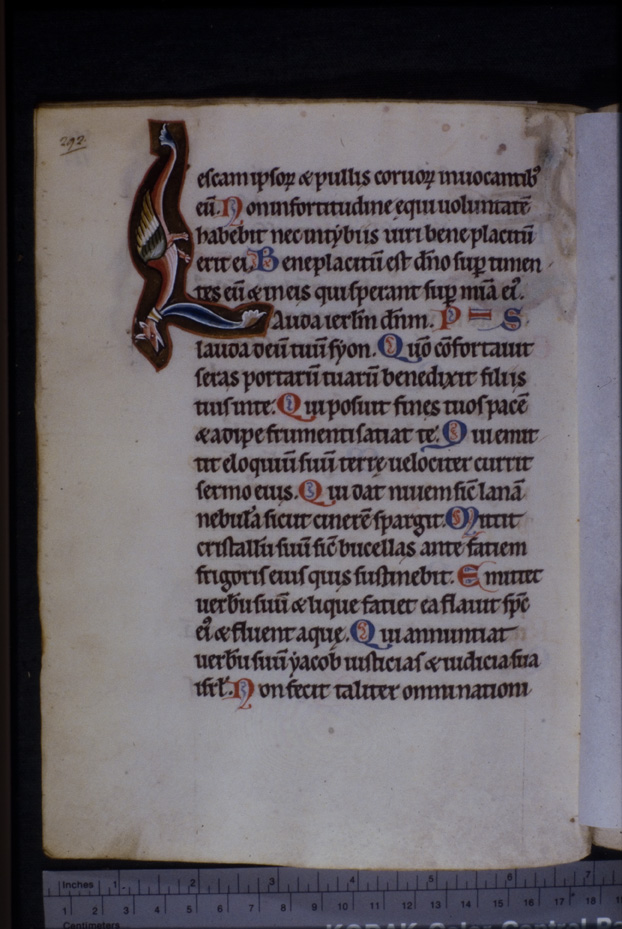 292
escam ipsoꝝ & pullis coruoꝝ inuocantibꝰ
eū. Non in fortitudine equi uoluntatē
habebit nec in tybiis uiri beneplacitū
erit ei. Beneplacitū est dn̄o suꝑ timen
tes eū & in eis qui sperant suꝑ mīa eiꝰ.
Lauda ierl̄m dn̄m. P S
lauda deū tuū syon. Qūo cōfortauit
seras portarū tuarū benedixit filiis
tuis in te. Qui posuit fines tuos pacē
& adipe frumenti satiat te. Qui emit
tit eloquiū suū terrę uelociter currit
sermo eius. Qui dat niuem sic̄ lanā
nebulā sicut cinerē spargit. Mittit
cristallū suū sic̄ bucellas ante fatiem
frigoris eius quis sustinebit. Emittet
uerbū suū & liquefatiet ea flauit sp̄c
eiꝰ & fluent aquę. Qui annuntiat
uerbū suū ẏacob iusticias & iudicia sua
isrl̄. Non fecit taliter omni nationi
Inches 1 2 3 4 5 6 7
1 2 3 4 5 6 7 8 9 10 11 12 13 14 15 16 17 18
Centimetres